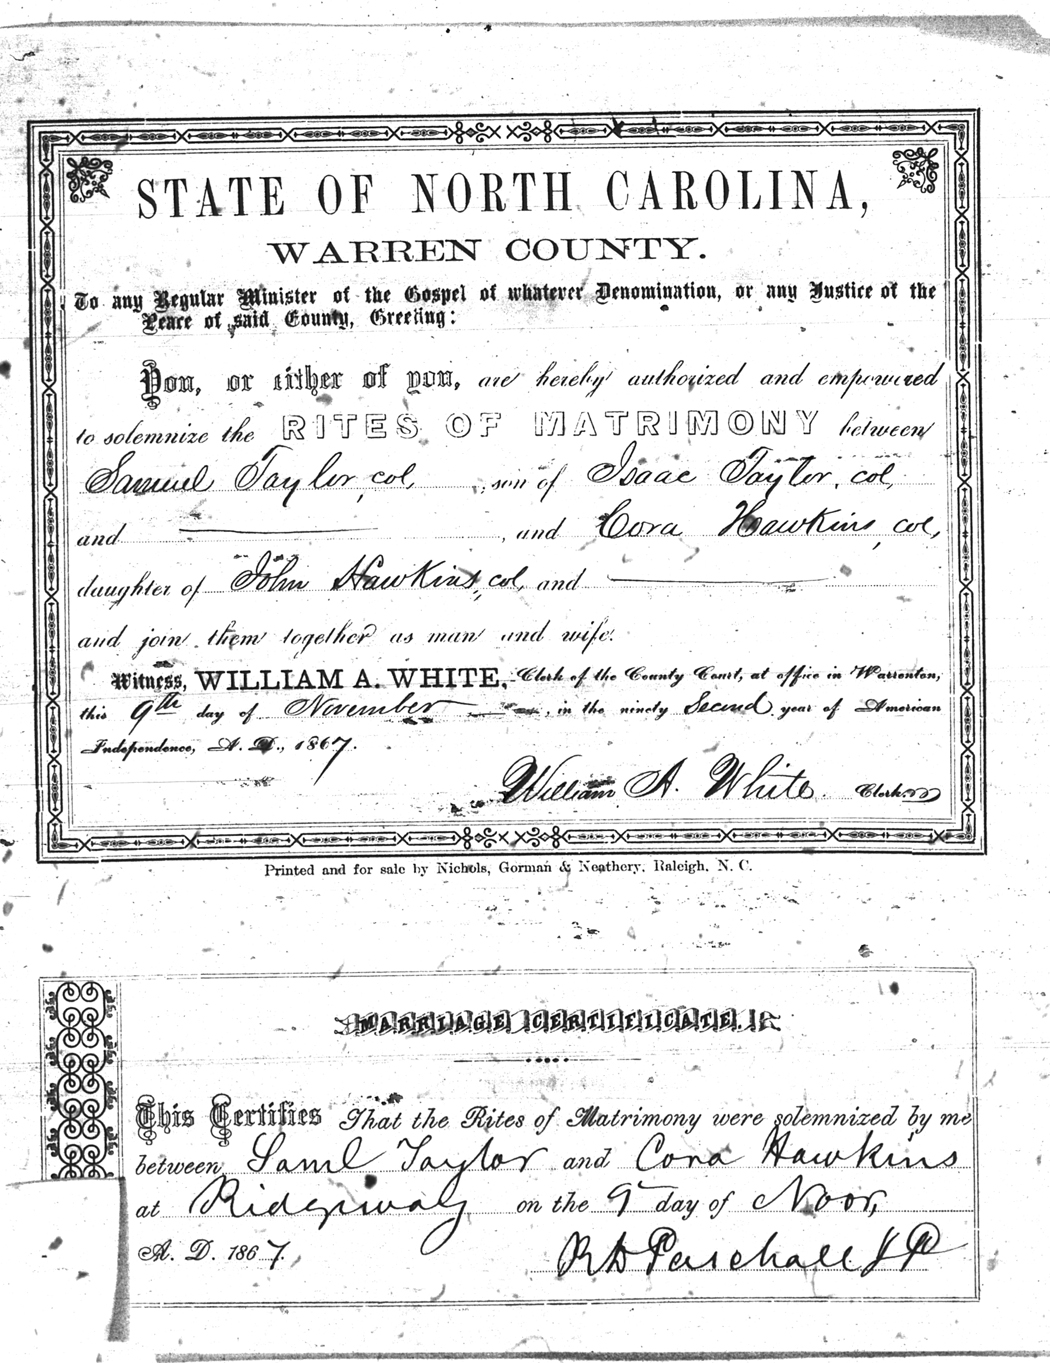 STATE OF NORTH CAROLINA,
WARREN COUNTY.
To any Regular Minister of the Gospel of whatever Denomination, or any Justice of the
Peace of said County, Greeting:
You, or either of you, are hereby authorized and empowered
to solemnize the RITES OF MATRIMONY between
Samuel Taylor, col, son of Isaac Taylor, col,
and , and Cora Hawkins, col,
daughter of John Hawkins, col, and
and join them together as man and wife.
Witness, WILLIAM A. WHITE, Clerk of the County Court, at office in Warrenton,
this 9th day of November , in the ninety Second year of American
Independence, A. D., 1867.
William A. White Clerk.
Printed and for sale by Nichols, Gorman & Neathery, Raleigh, N. C.
MARRIAGE CERTIFICATE.
This Certifies That the Rites of Matrimony were solemnized by me
between Saml Taylor and Cora Hawkins
at Ridgway on the 9 day of Nov,
A. D. 1867.
R D Paschall J P